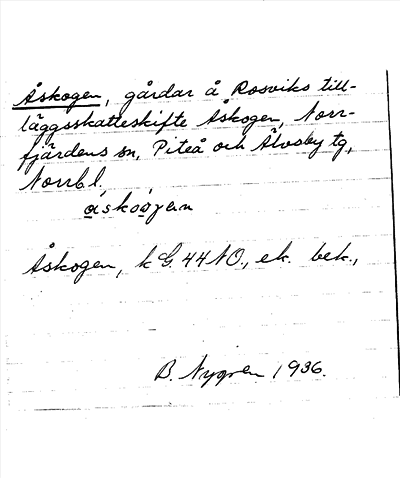 Åskogen, gårdar å Rosviks till-
läggsskatteskifte Åskogen, Norr-
fjärdens sn, Piteå och Älvsby tg,
Norrb l.
åskoɷgen
Åskogen, k G. 44 NO., ek. bek.,
B. Nygren 1936.